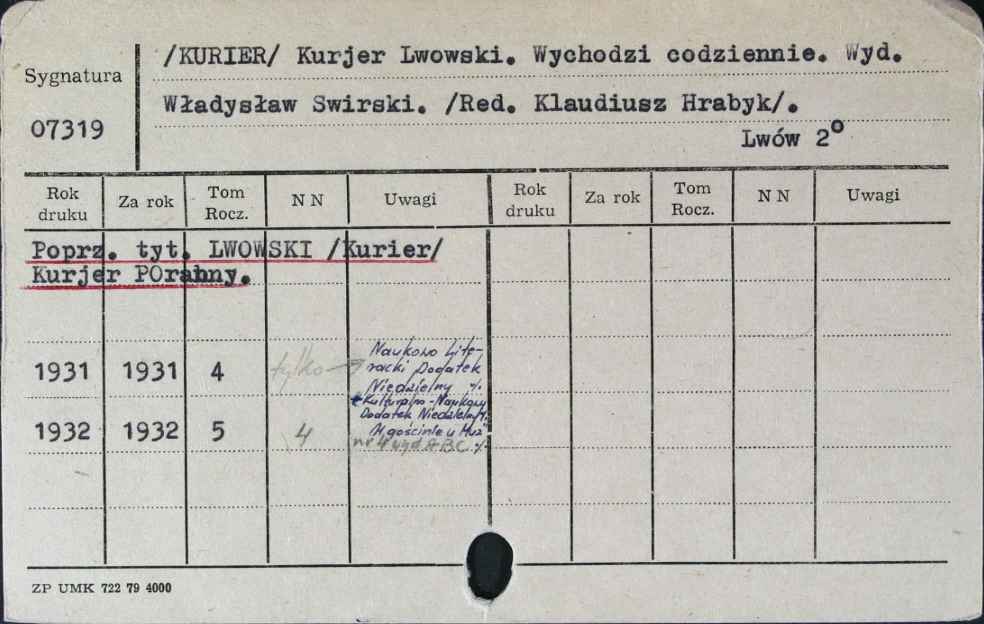 /KURIER/ Kurjer Lwowski. Wychodzi codziennie. Wyd.
Sygnatura
Władysław Swirski. /Red. Klaudiusz Hrabyk/.
07319
Lwów 2°
Rok druku Za rok Tom Rocz. N N Uwagi Rok druku Za rok Tom Rocz. N N Uwagi
Poprz. tyt. LWOWSKI /Kurier/
Kurjer POranny.
Naukowo Lite-
1931 1931 4 tylko → racki Dodatek
Niedzielny %.
Kulturalno-Naukowy
Dodatek Niedzielny %.
1932 1932 5 4 "W gościnie u Muz"
nr 4 wyd. ABC %.
ZP UMK 722 79 4000